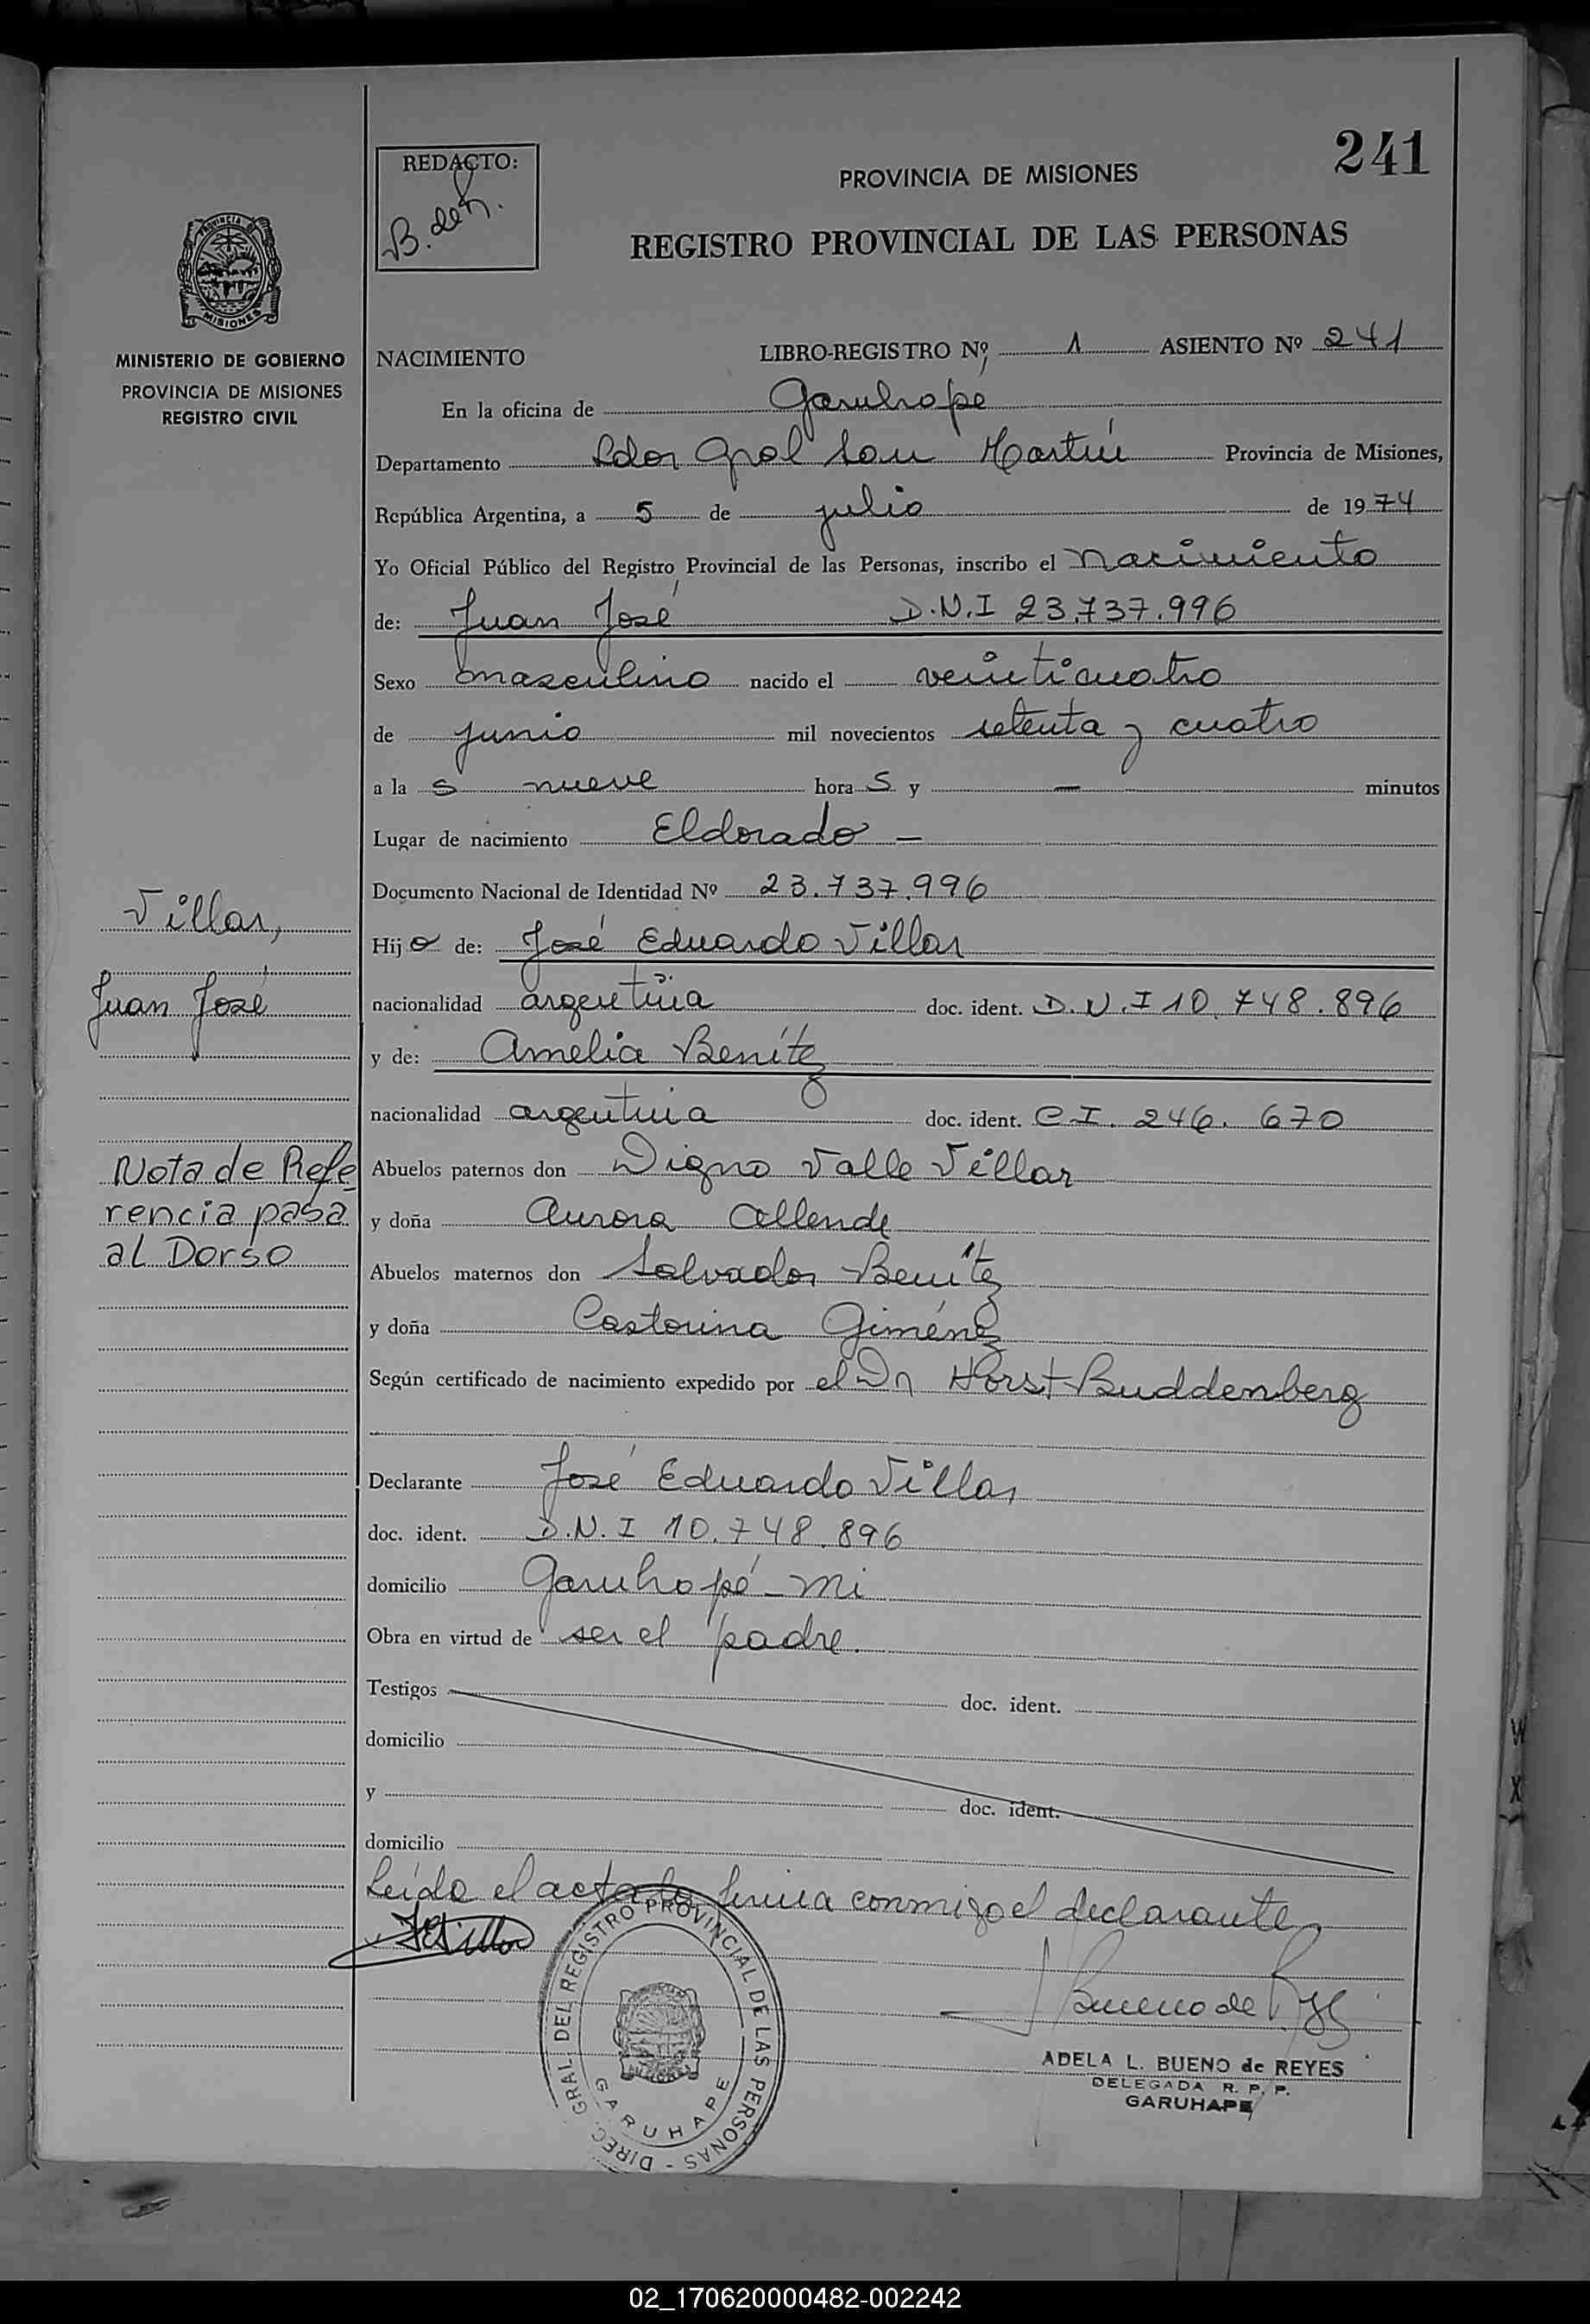 241
REDACTO:
B. de R.
PROVINCIA DE MISIONES
REGISTRO PROVINCIAL DE LAS PERSONAS
PROVINCIA
MISIONES
MINISTERIO DE GOBIERNO
PROVINCIA DE MISIONES
REGISTRO CIVIL
NACIMIENTO LIBRO-REGISTRO Nº 1 ASIENTO Nº 241
En la oficina de Garuhape
Departamento Ldor Gral San Martín Provincia de Misiones,
República Argentina, a 5 de julio de 1974
Yo Oficial Público del Registro Provincial de las Personas, inscribo el Nacimiento
de: Juan José D.N.I 23.737.996
Sexo masculino nacido el veinticuatro
de junio mil novecientos setenta y cuatro
a la s nueve hora s y — minutos
Lugar de nacimiento Eldorado —
Documento Nacional de Identidad Nº 23.737.996
Villar,
Juan José
Hij o de: José Eduardo Villar
nacionalidad argentina doc. ident. D.N.I 10.748.896
y de: Amelia Benítez
nacionalidad argentina doc. ident. C I. 246. 670
Nota de Refe
rencia pasa
al Dorso
Abuelos paternos don Digno Valle Villar
y doña Aurora Allende
Abuelos maternos don Salvador Benítez
y doña Castorina Giménez
Según certificado de nacimiento expedido por el Dr Horst Buddenberg
Declarante José Eduardo Villar
doc. ident. D.N.I 10.748.896
domicilio Garuhapé - Mi
Obra en virtud de ser el padre.
Testigos doc. ident.
domicilio
y doc. ident.
domicilio
Leída el acta la firma conmigo el declarante
JEVillar
Bueno de
DIREC. GRAL. DEL REGISTRO PROVINCIAL DE LAS PERSONAS -
GARUHAPE
ADELA L. BUENO de REYES
DELEGADA R. P. P.
GARUHAPE
02_170620000482-002242